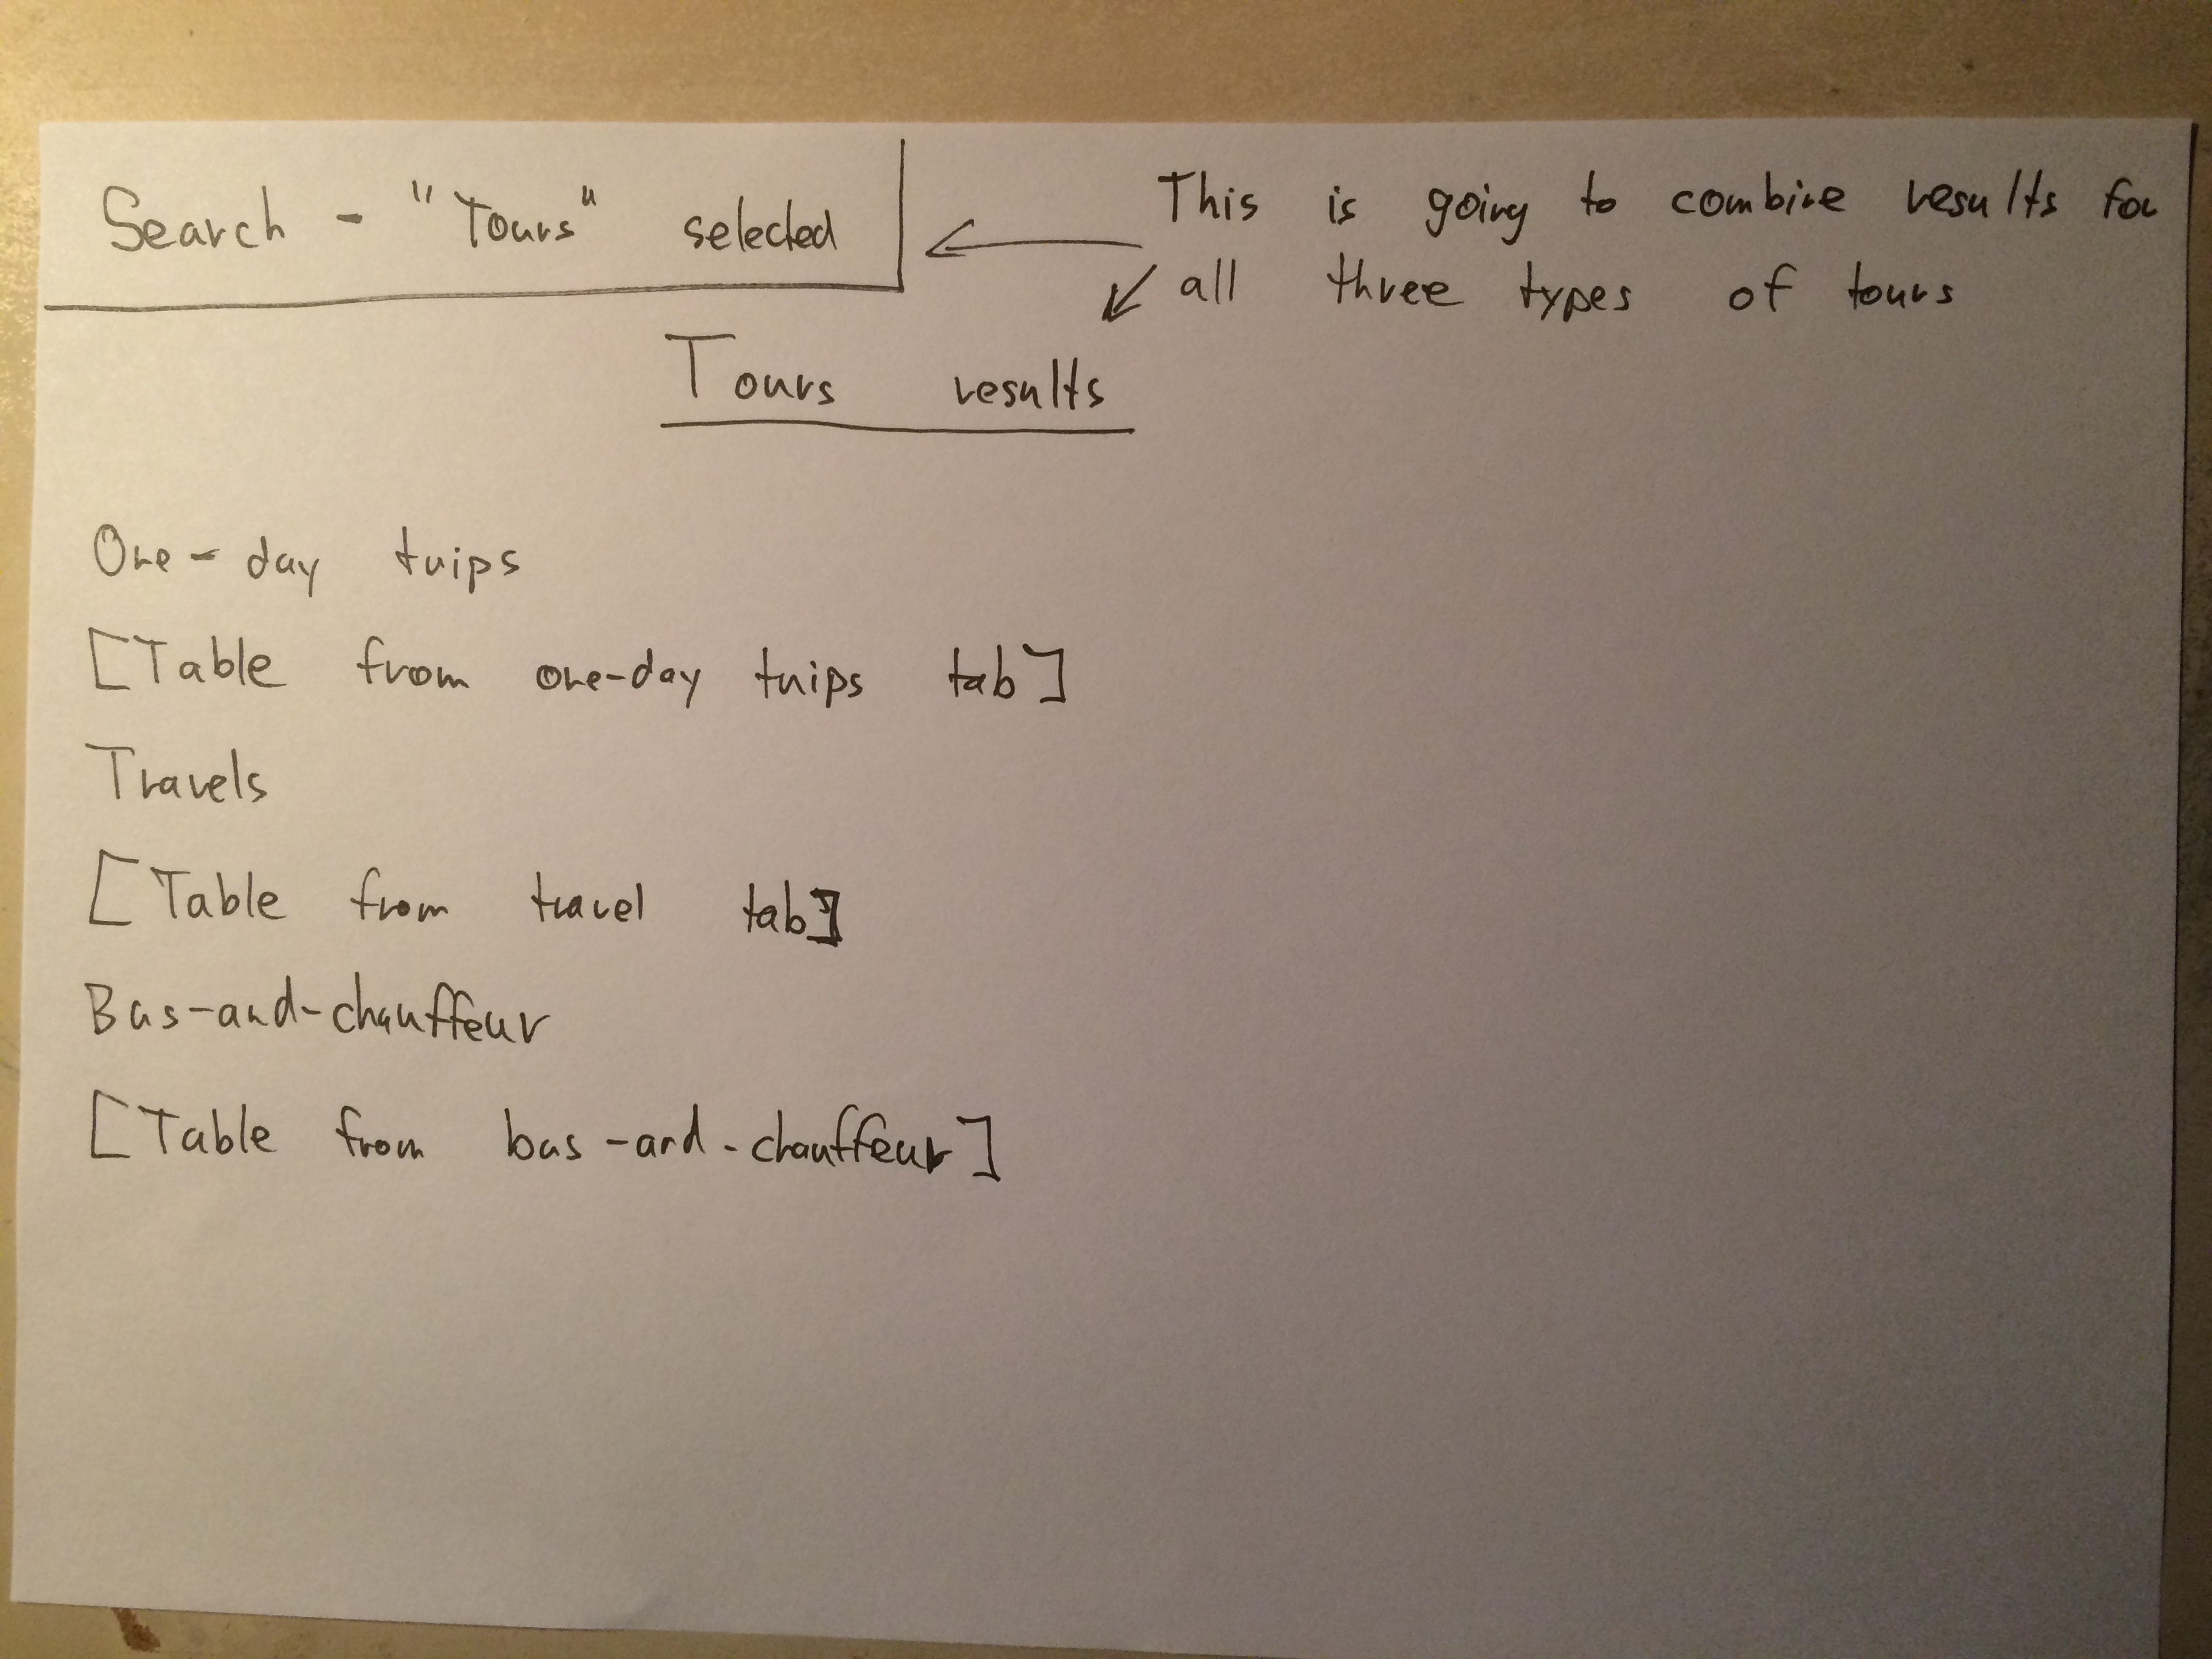 Search - "Tours" selected
This is going to combine results for
all three types of tours
Tours results
One-day trips
[Table from one-day trips tab]
Travels
[Table from travel tab]
Bus-and-chauffeur
[Table from bus-and-chauffeur]